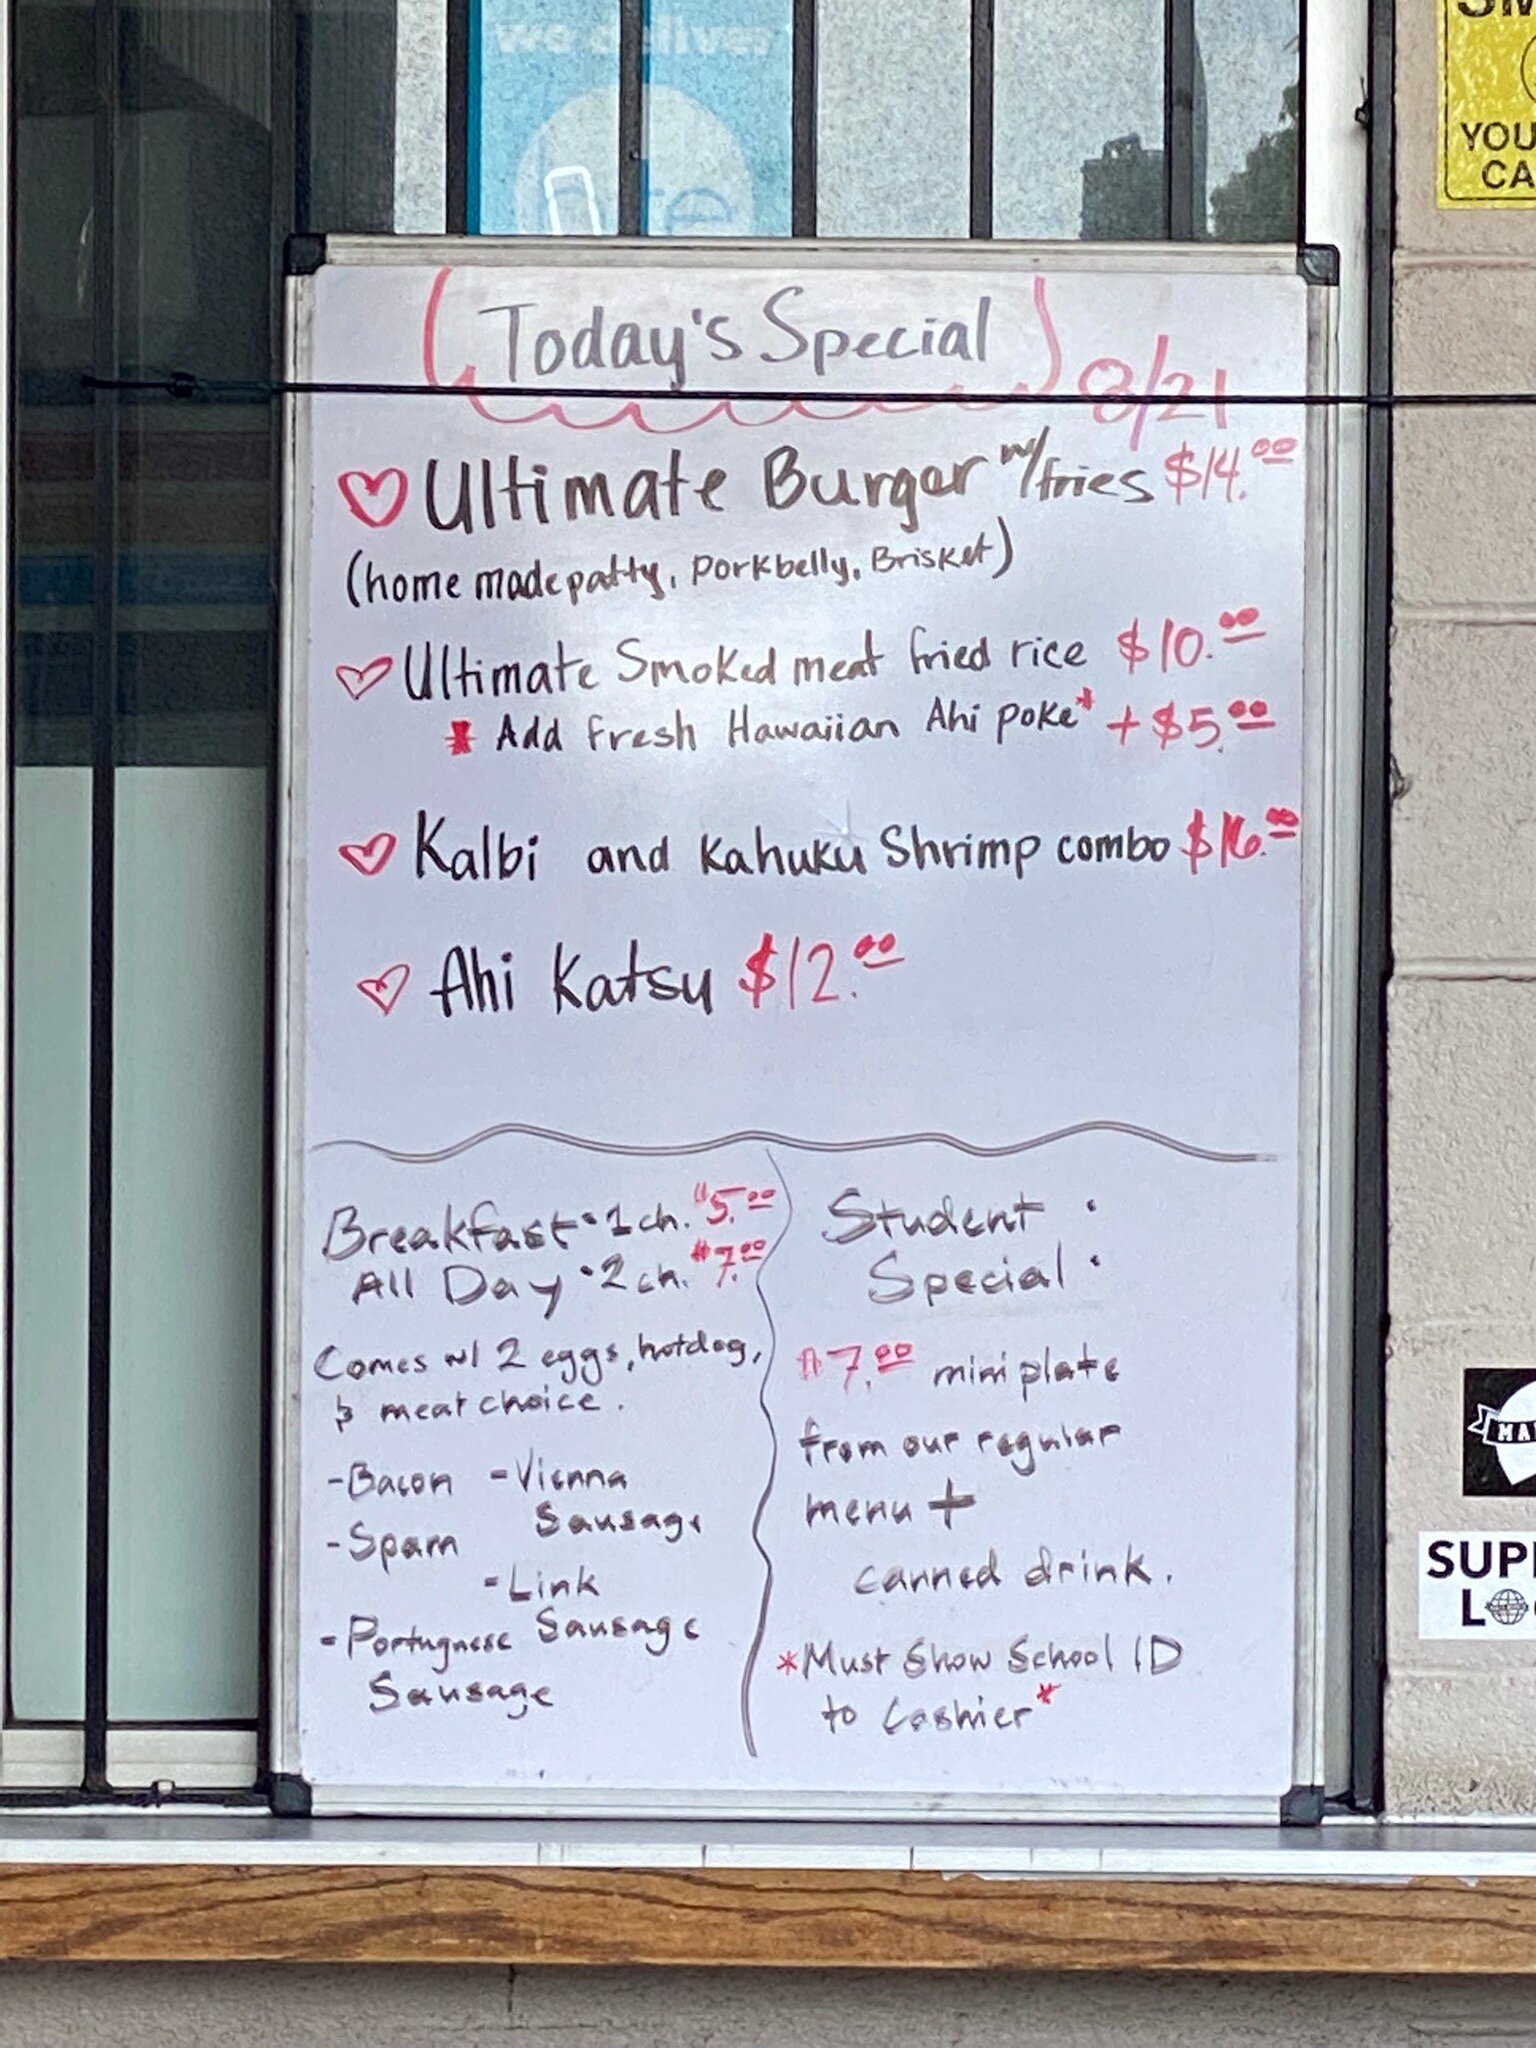 we deliver
Today's Special
8/21
Ultimate Burger w/fries $14.00
(home made patty, Porkbelly, Brisket)
Ultimate Smoked meat fried rice $10.00
* Add Fresh Hawaiian Ahi poke* + $5.00
Kalbi and Kahuku Shrimp combo $16.00
Ahi Katsu $12.00
Breakfast • 1 ch. $5.00
All Day • 2 ch. $7.00
Comes w/ 2 eggs, hotdog,
& meat choice.
- Bacon
- Spam
- Portuguese
Sausage
- Vienna
Sausage
- Link
Sausage
Student :
Special :
$7.00 mini plate
from our regular
menu +
canned drink.
*Must Show School ID
to Cashier*
SM
YOU
CA
MA
SUP
LO